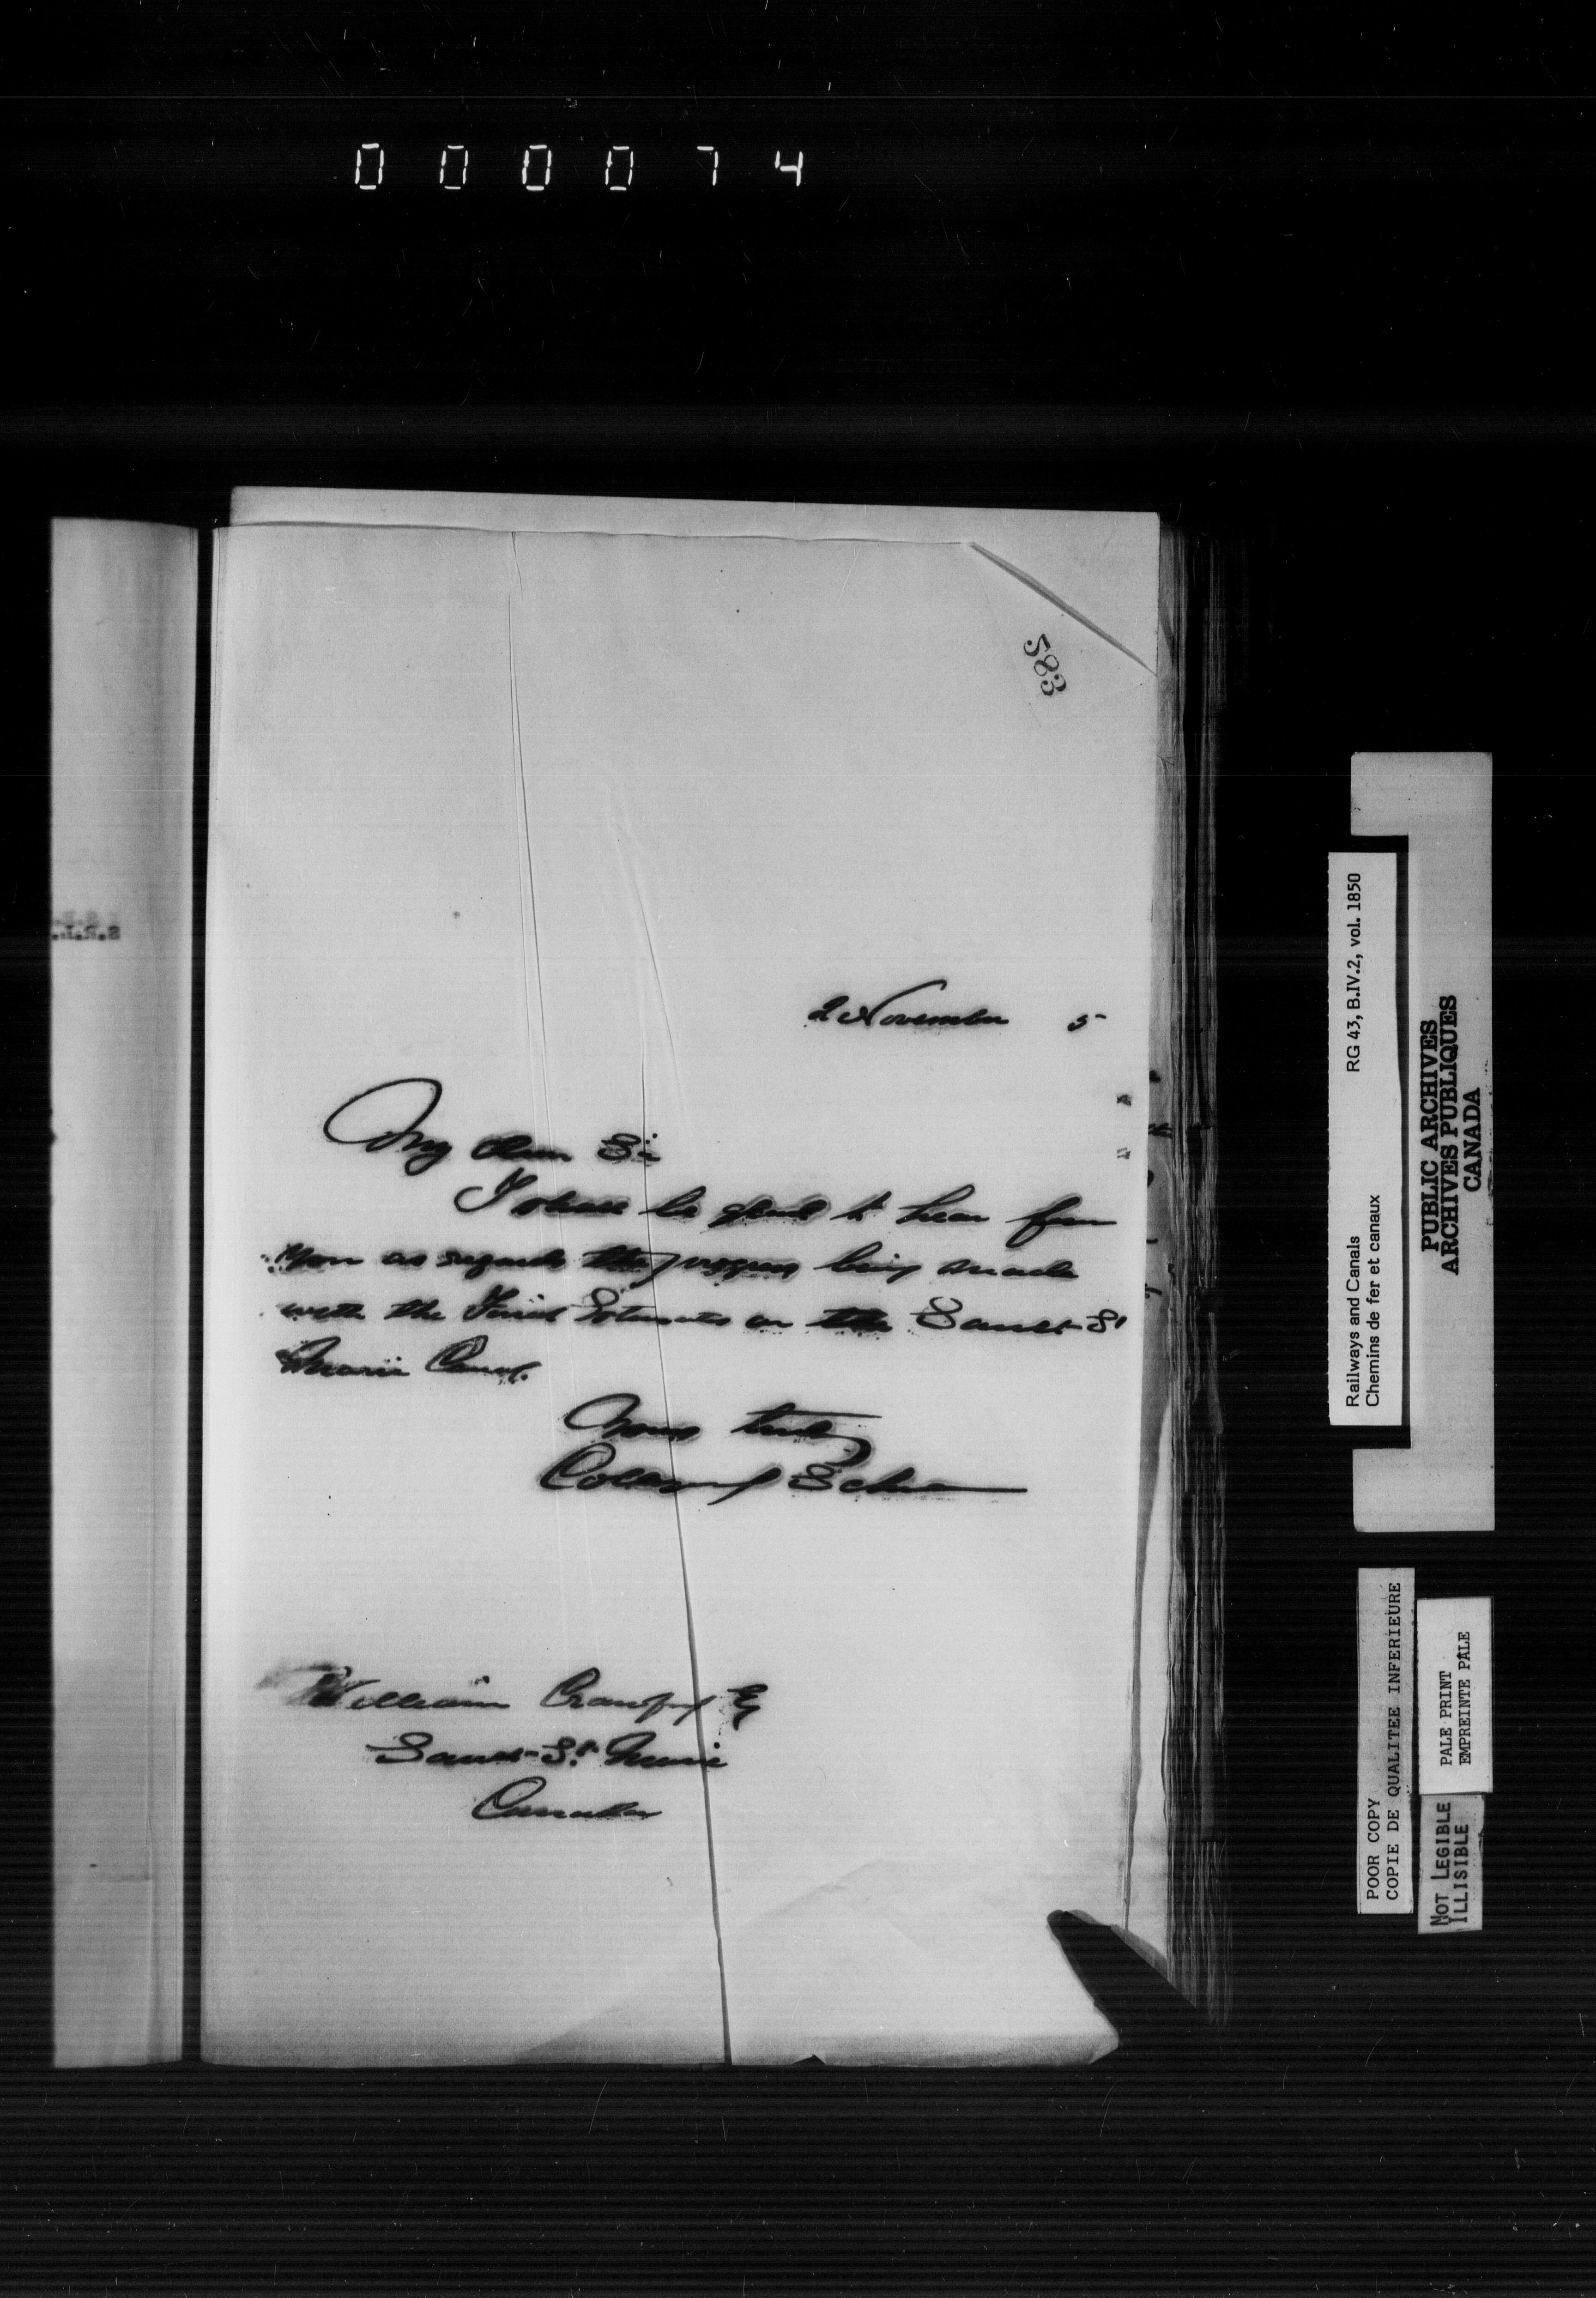 000074
583
2 November 5
My dear Sir
I shall be glad to hear from
you as regards the progress being made
with the Final Estimates on the Sault St
Marie Canal.
Yours truly
Collingwood Schreiber
William Crawford Esq
Sault St. Marie
Canada
Railways and Canals RG 43, B.IV.2, vol. 1850
Chemins de fer et canaux
PUBLIC ARCHIVES
ARCHIVES PUBLIQUES
CANADA
POOR COPY
COPIE DE QUALITEE INFERIEURE
PALE PRINT
EMPREINTE PALE
NOT LEGIBLE
ILLISIBLE